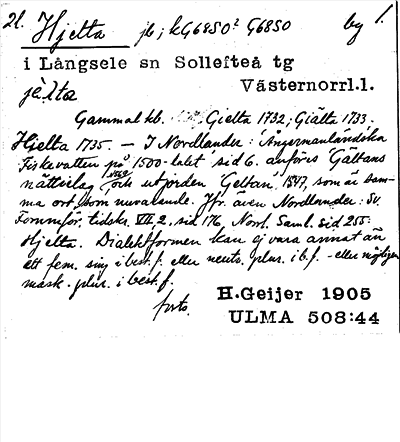 21. Hjelta jb; kG6850² G6850 by 1.
i Långsele sn Sollefteå tg
jèlta Västernorrl.l.
Gammal kb. Gielta 1732; Giälta 1733.
Hjelta 1735. – I Nordlander: Ångermanländska
Fiskevatten på 1500-talet sid 6. anföres Gältans
nätvilag och utjorden Geltan, 1547, som är sam-
ma ort som nuvarande. Jfr. även Nordlander: Sv.
Fornmför. tidskr. VIII 2. sid 176, Norrl. Saml. sid 255:
Hjelta. Dialektformen kan ej vara annat än
ett fem. sing i best. f. eller neutr. plur. i b.f. – eller möjligen
mask. plur. i best. f.
forts.
H.Geijer 1905
ULMA 508:44